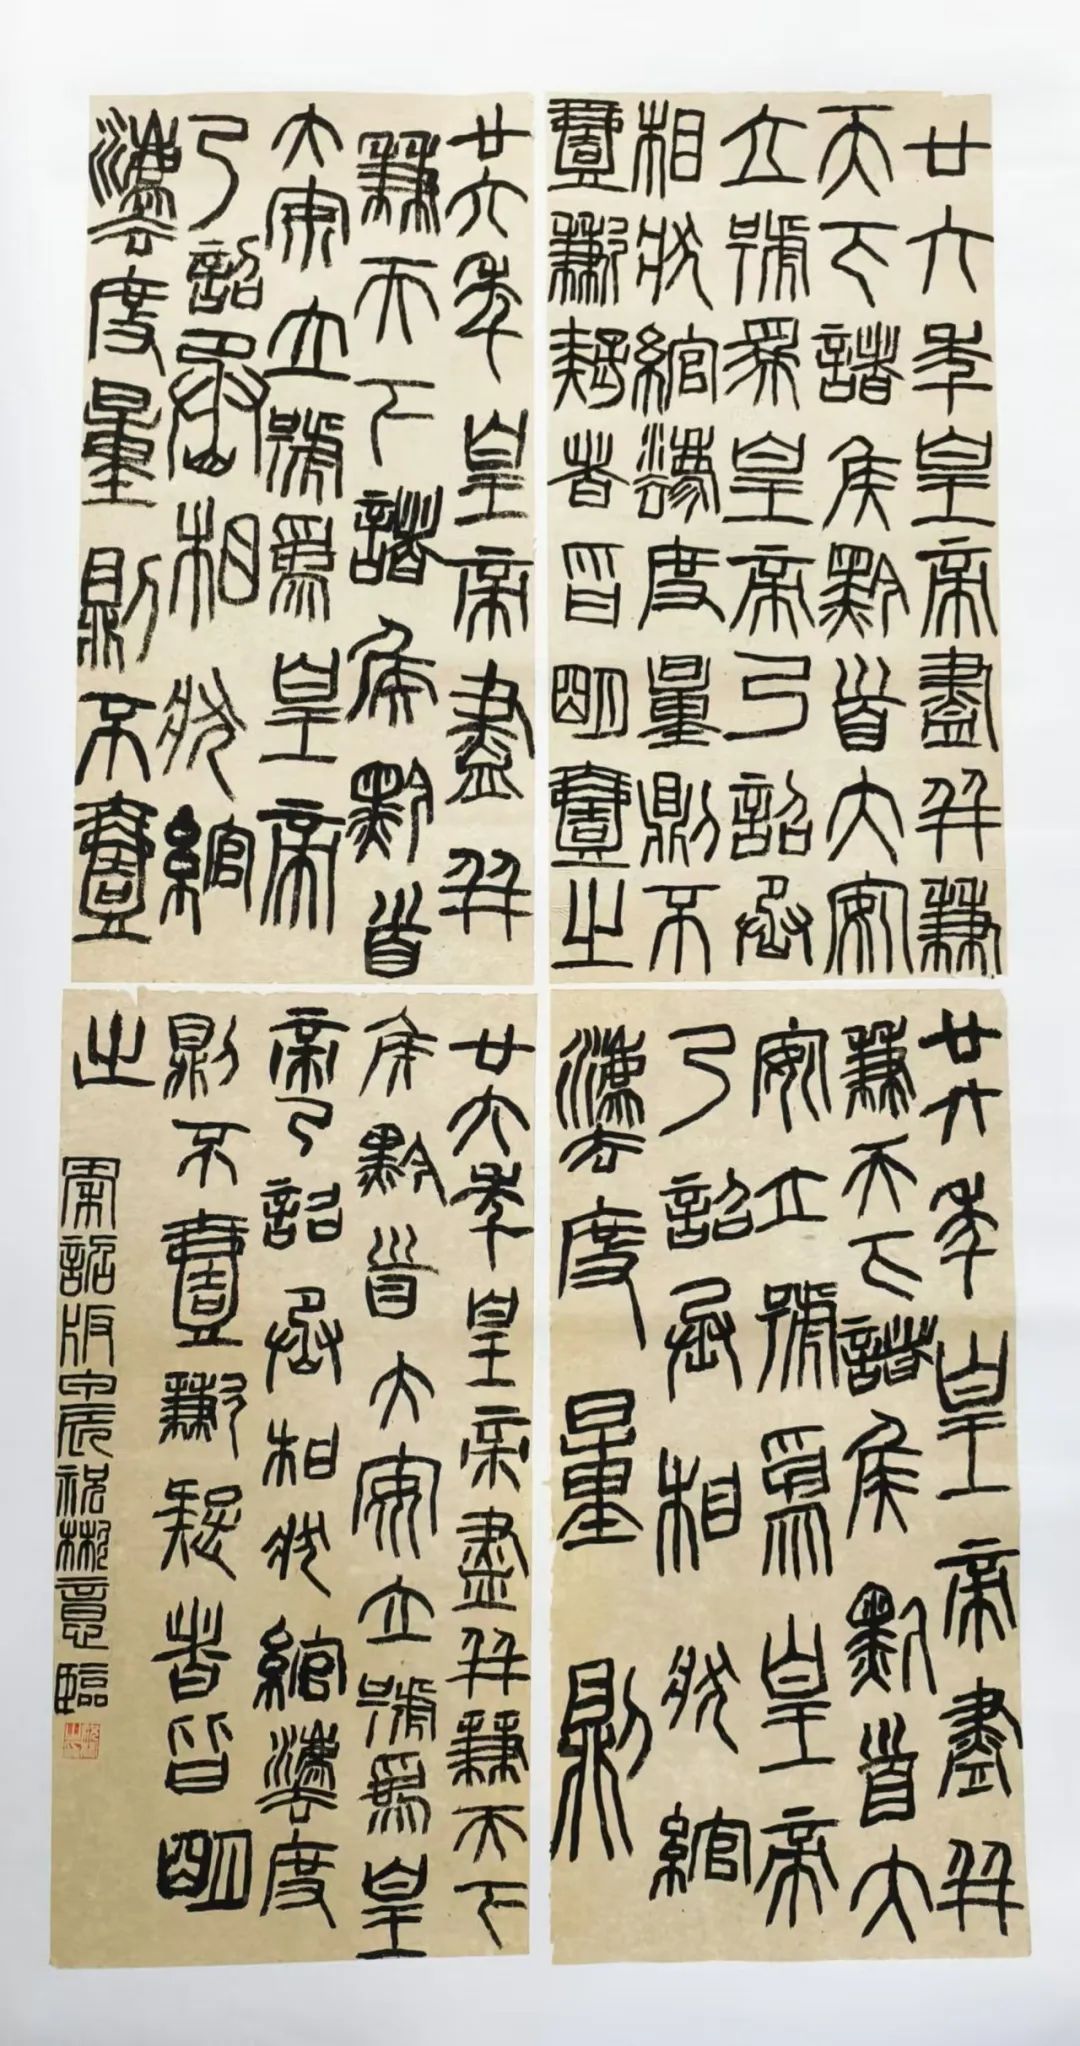 廿六年皇帝盡并兼
天下諸侯黔首大安
立號為皇帝乃詔丞
相狀綰灋度量則不
壹歉疑者皆明壹之
廿六年皇帝盡并
兼天下諸侯黔首
大安立號為皇帝
乃詔丞相狀綰
灋度量則不壹
廿六年皇帝盡并
兼天下諸侯黔首大
安立號為皇帝
乃詔丞相狀綰
灋度量則
廿六年皇帝盡并兼天下
侯黔首大安立號為皇
帝乃詔丞相狀綰灋度
則不壹歉疑者皆明
之
秦詔版甲辰祝意臨